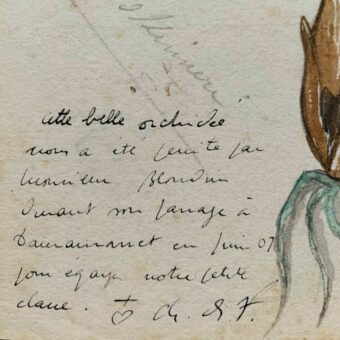 Skinneri
cette belle orchidée
nous a été peinte par
Monsieur Blondin
durant son passage à
en Juin 07
pour égayer notre petite
classe. Ch. S. F.